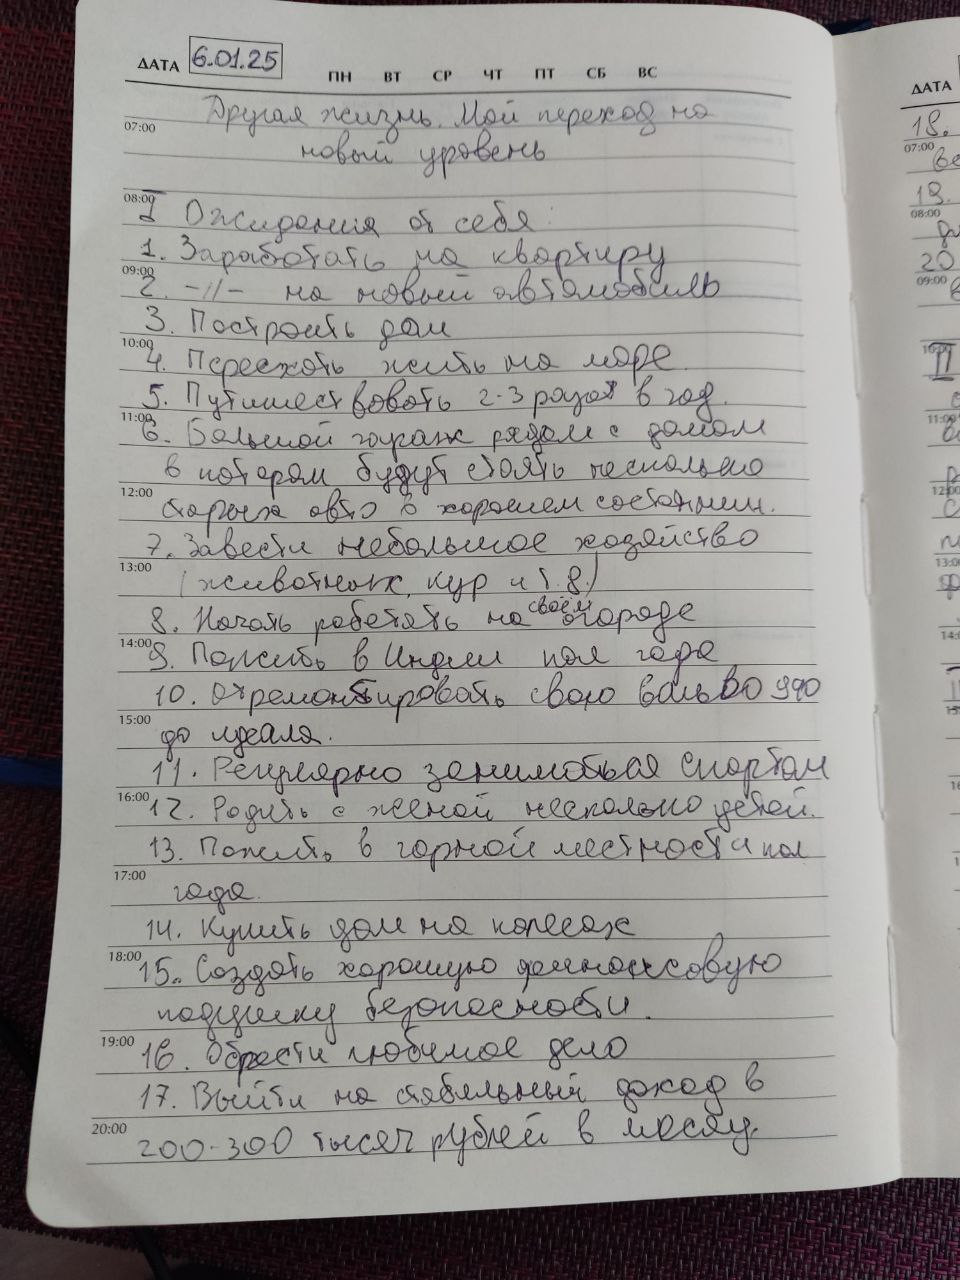 ДАТА 6.01.25 ПН ВТ СР ЧТ ПТ СБ ВС
Другая жизнь. Мой переход на
07:00
новый уровень
08:00
I Ожидания от себя:
1. Заработать на квартиру
09:00
2. -//- на новый автомобиль
3. Построить дом
10:00
4. Переехать жить на море.
5. Путишествовать 2-3 раза в год.
11:00
6. Большой гараж рядом с домом
в котором будут стоять несколько
12:00
старых авто в хорошем состоянии.
7. Завести небольшое хозяйство
13:00
(животных, кур и т.д.)
8. Начать работать на своём огороде
14:00
9. Пожить в Индии пол года
10. Отремонтировать свою вольво 940
15:00
до идеала.
11. Регулярно заниматься спортом
16:00
12. Родить с женой несколько детей.
13. Пожить в горной местности пол
17:00
года.
14. Купить дом на колесах
18:00
15. Создать хорошую финансовую
подушку безопасности.
19:00
16. Обрести любимое дело
17. Выйти на стабильный доход в
20:00
200-300 тысяч рублей в месяц.
ДАТА
18.
07:00
19.
08:00
20
09:00
10:00
II
11:00
12:00
13:00
14:00